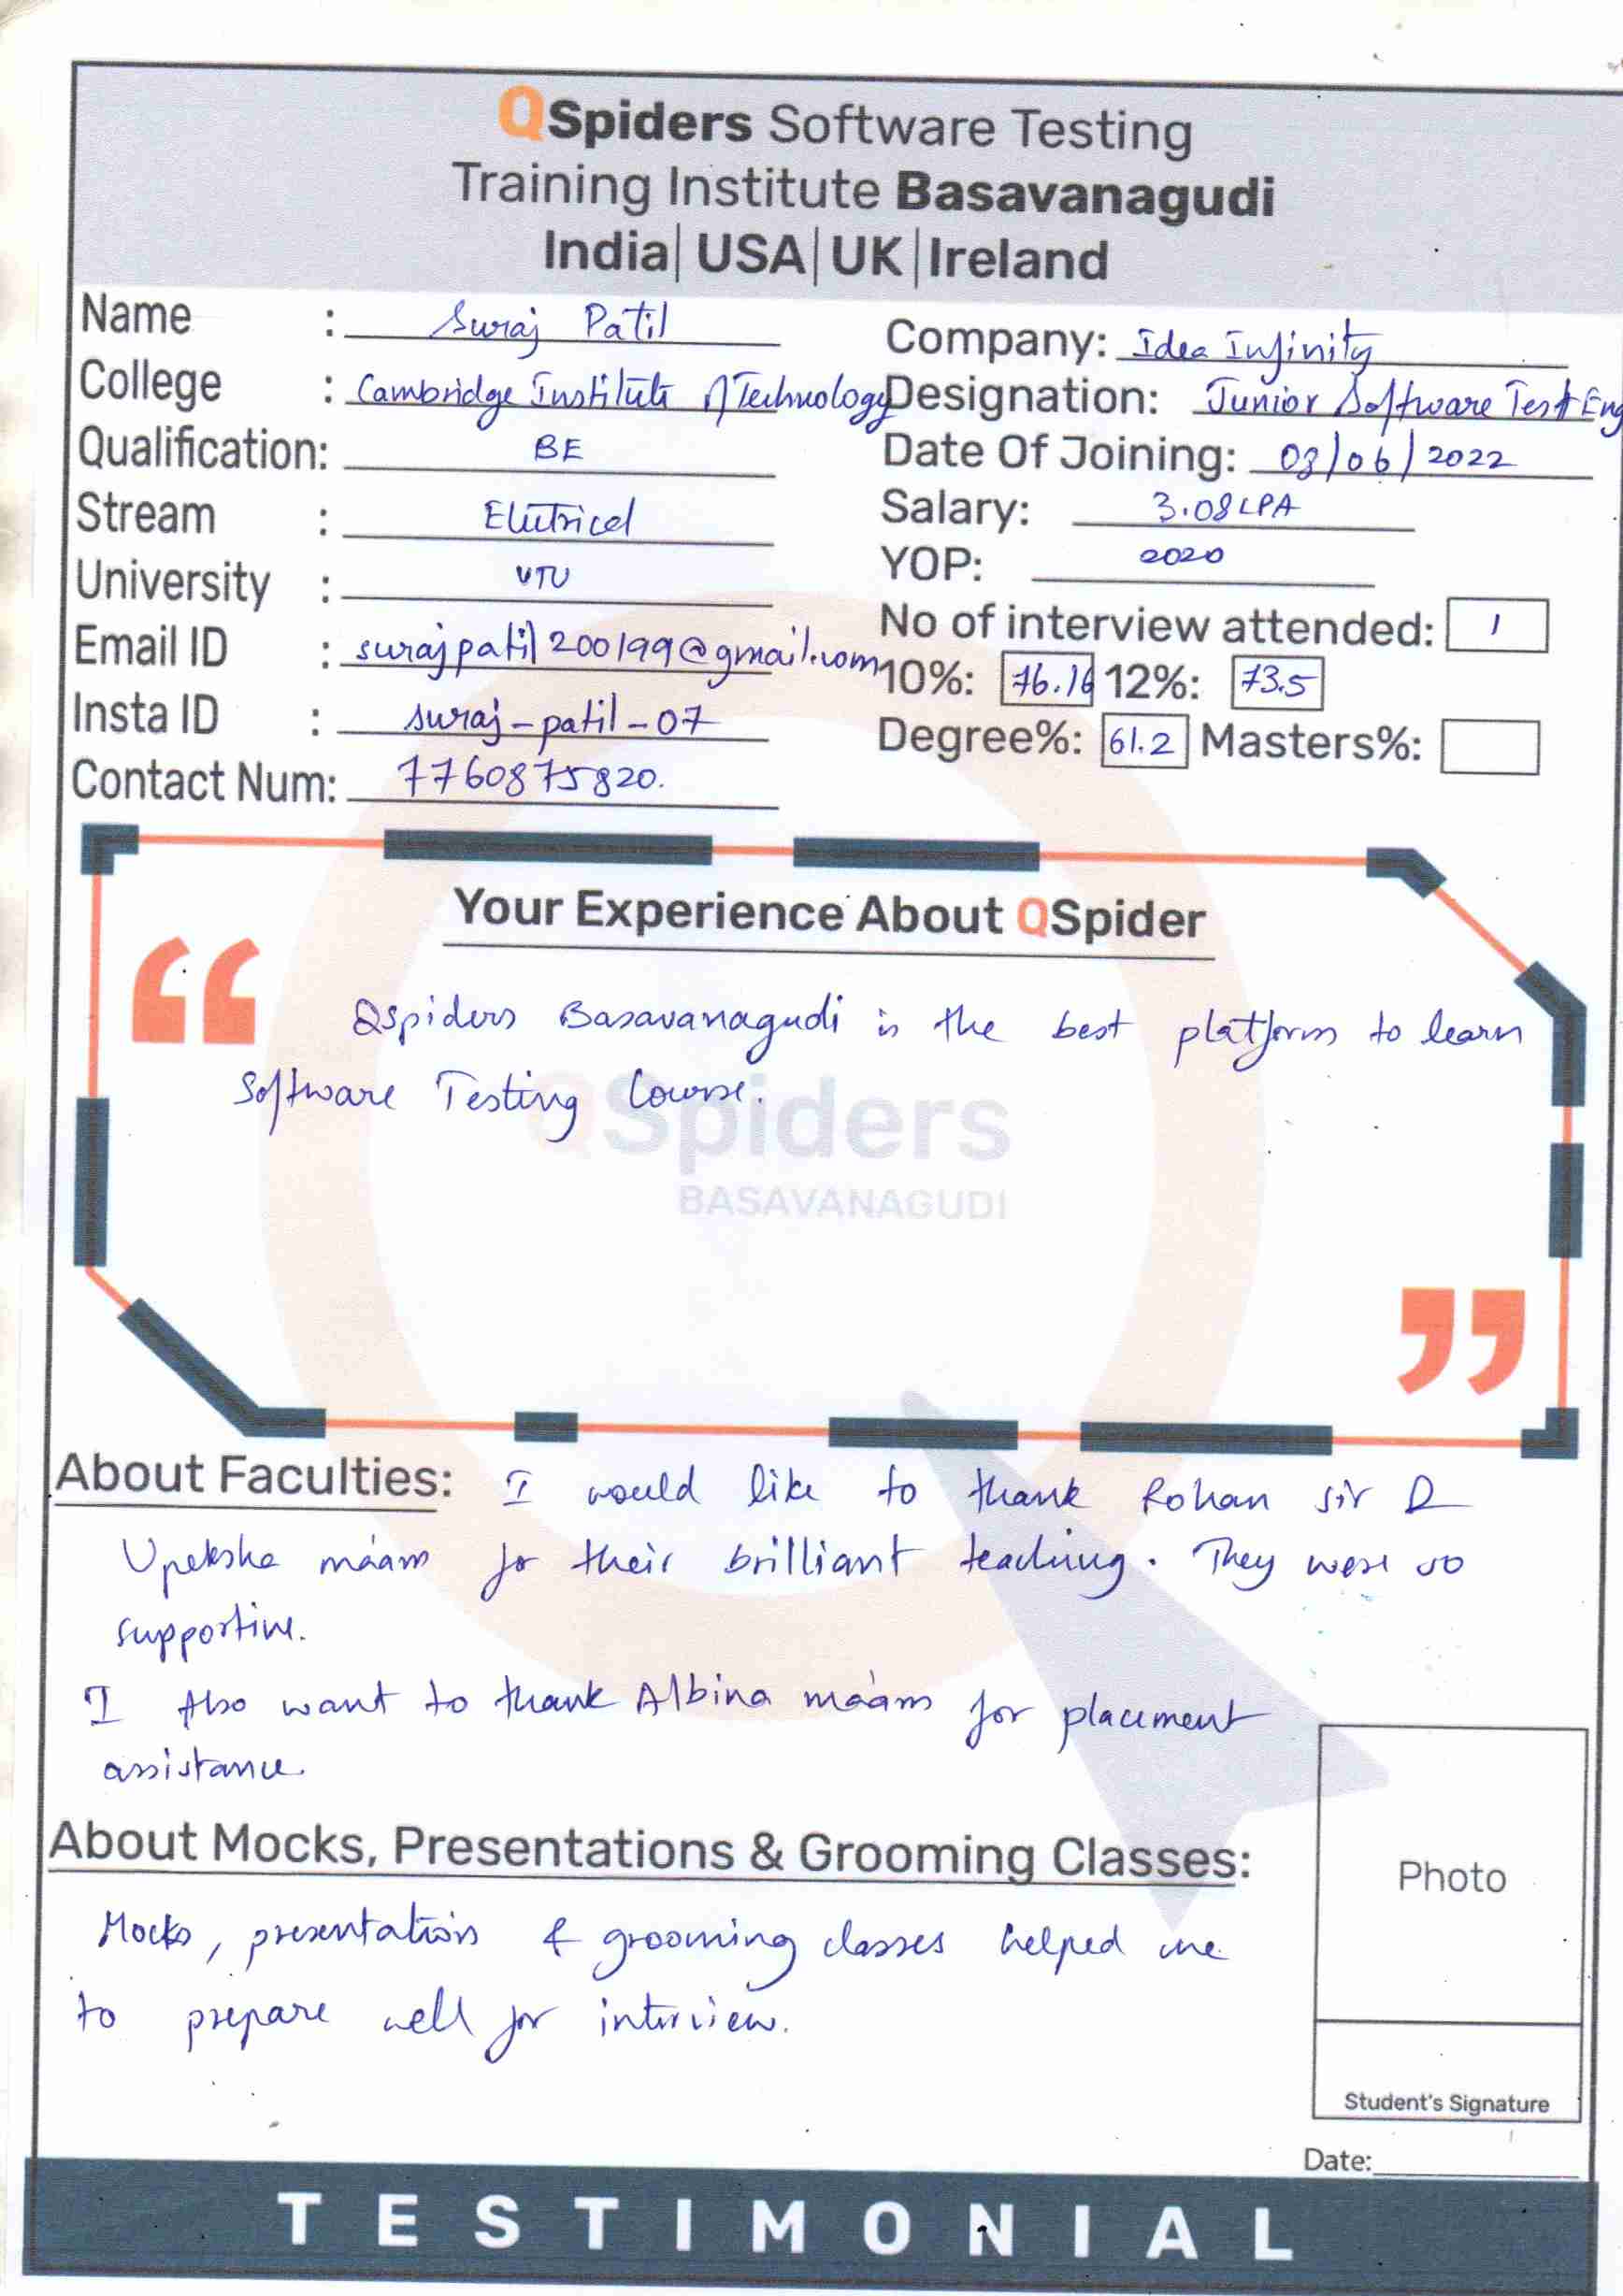 QSpiders Software Testing
Training Institute Basavanagudi
India| USA| UK| Ireland
Name : Suraj Patil
Company: Idea Infinity
College : Cambridge Institute of Technology
Designation: Junior Software Test Eng
Qualification: BE
Date Of Joining: 03/06/2022
Stream : Electrical
Salary: 3.08 LPA
University : VTU
YOP: 2020
No of interview attended: 1
Email ID : surajpatil200199@gmail.com
10%: 76.16 12%: 73.5
Insta ID : suraj-patil-07
Degree%: 61.2 Masters%:
Contact Num: 7760875820.
Your Experience About QSpider
“
Qspiders Basavanagudi is the best platform to learn
Software Testing Course.
QSpiders
BASAVANAGUDI
”
About Faculties: I would like to thank Rohan sir &
Upeksha ma'am for their brilliant teaching. They were so
supportive.
I Also want to thank Albina ma'am for placement
assistance.
About Mocks, Presentations & Grooming Classes:
Mocks, presentations & grooming classes helped me
to prepare well for interview.
Photo
Student's Signature
Date:
TESTIMONIAL